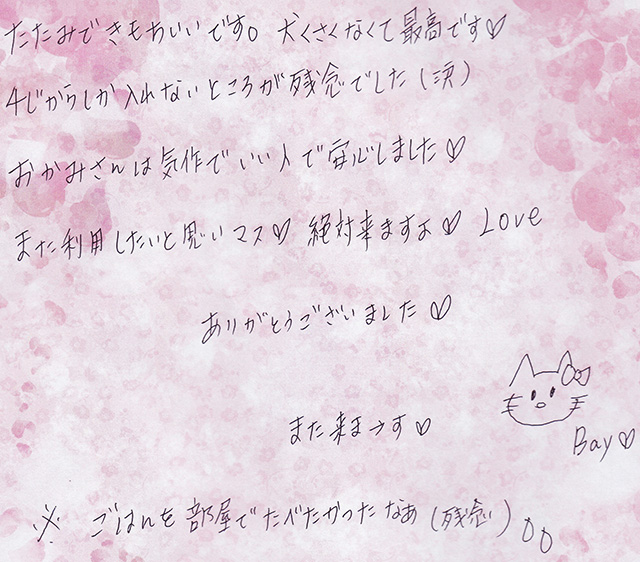 たたみできもちいいです。犬くさくなくて最高です♡
4じからしか入れないところが残念でした(涙)
おかみさんは気作でいい人で安心しました♡
また利用したいと思いマス♡ 絶対来ますよ♡ Love
ありがとうございました♡
また来まーす♡
Bay♡
※ ごはんを部屋でたべたかったなぁ(残念)